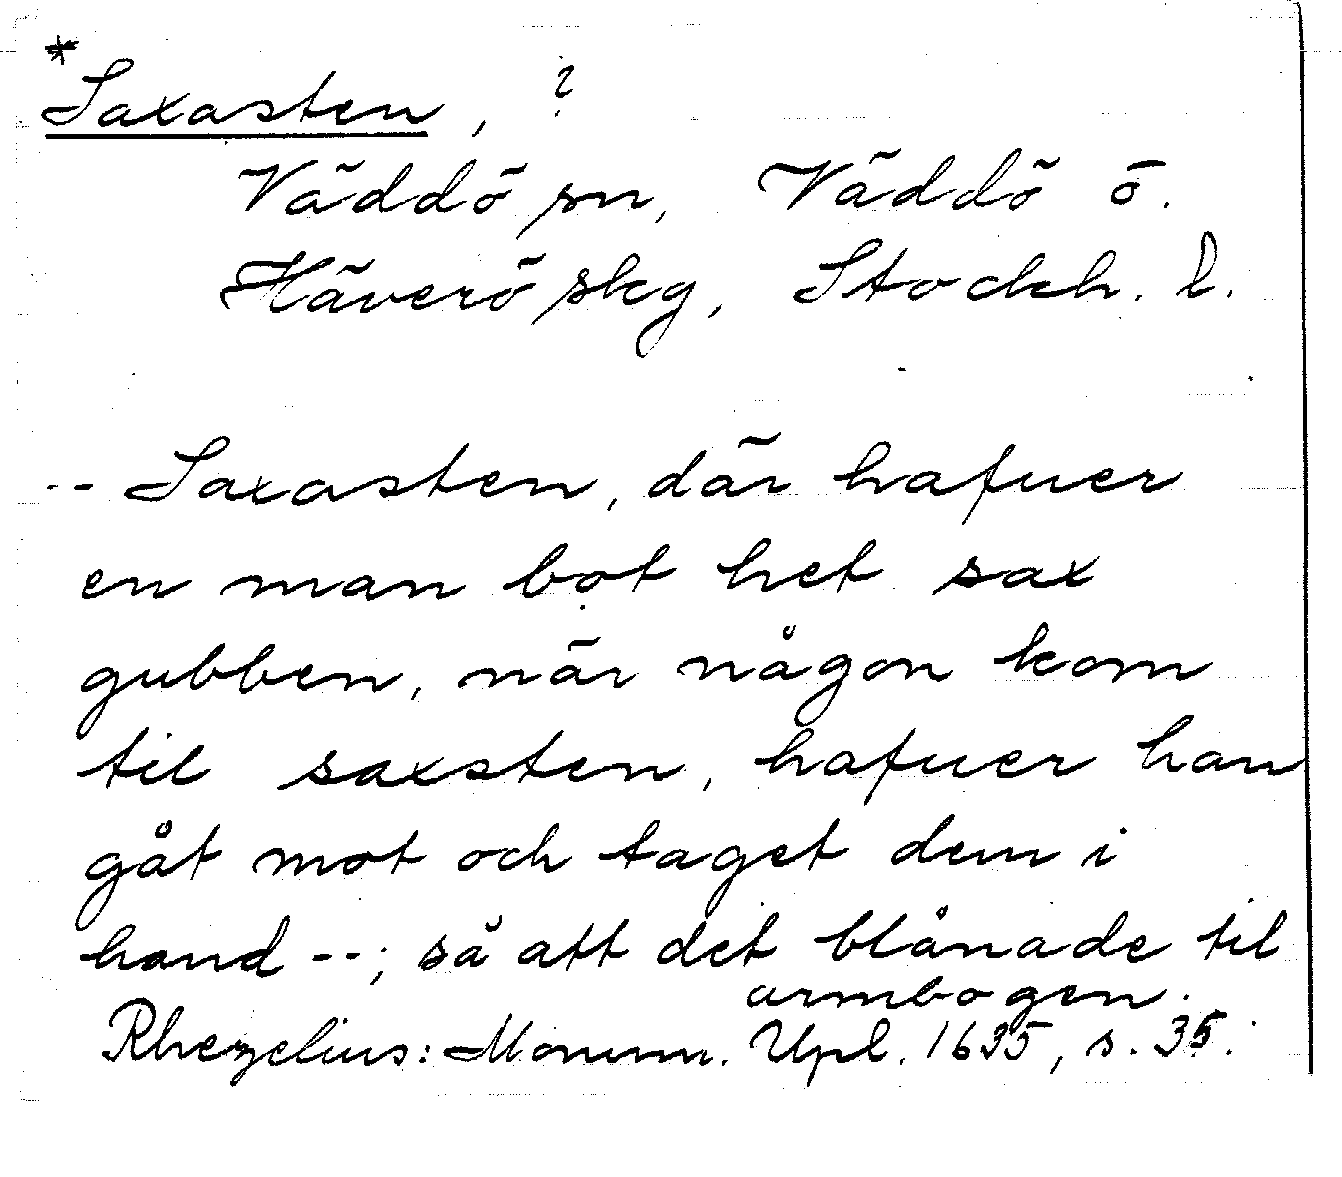 *
Saxasten, ?
Väddö sn, Väddö ö.
Häverö skg, Stockh. l.
-- Saxasten, där hafuer
en man bot het sax
gubben, när någon kom
til saxsten, hafuer han
gåt mot och taget dem i
hand --; så att det blånade til
armbogen.
Rhezelius: Monum. Upl. 1635, s. 35.